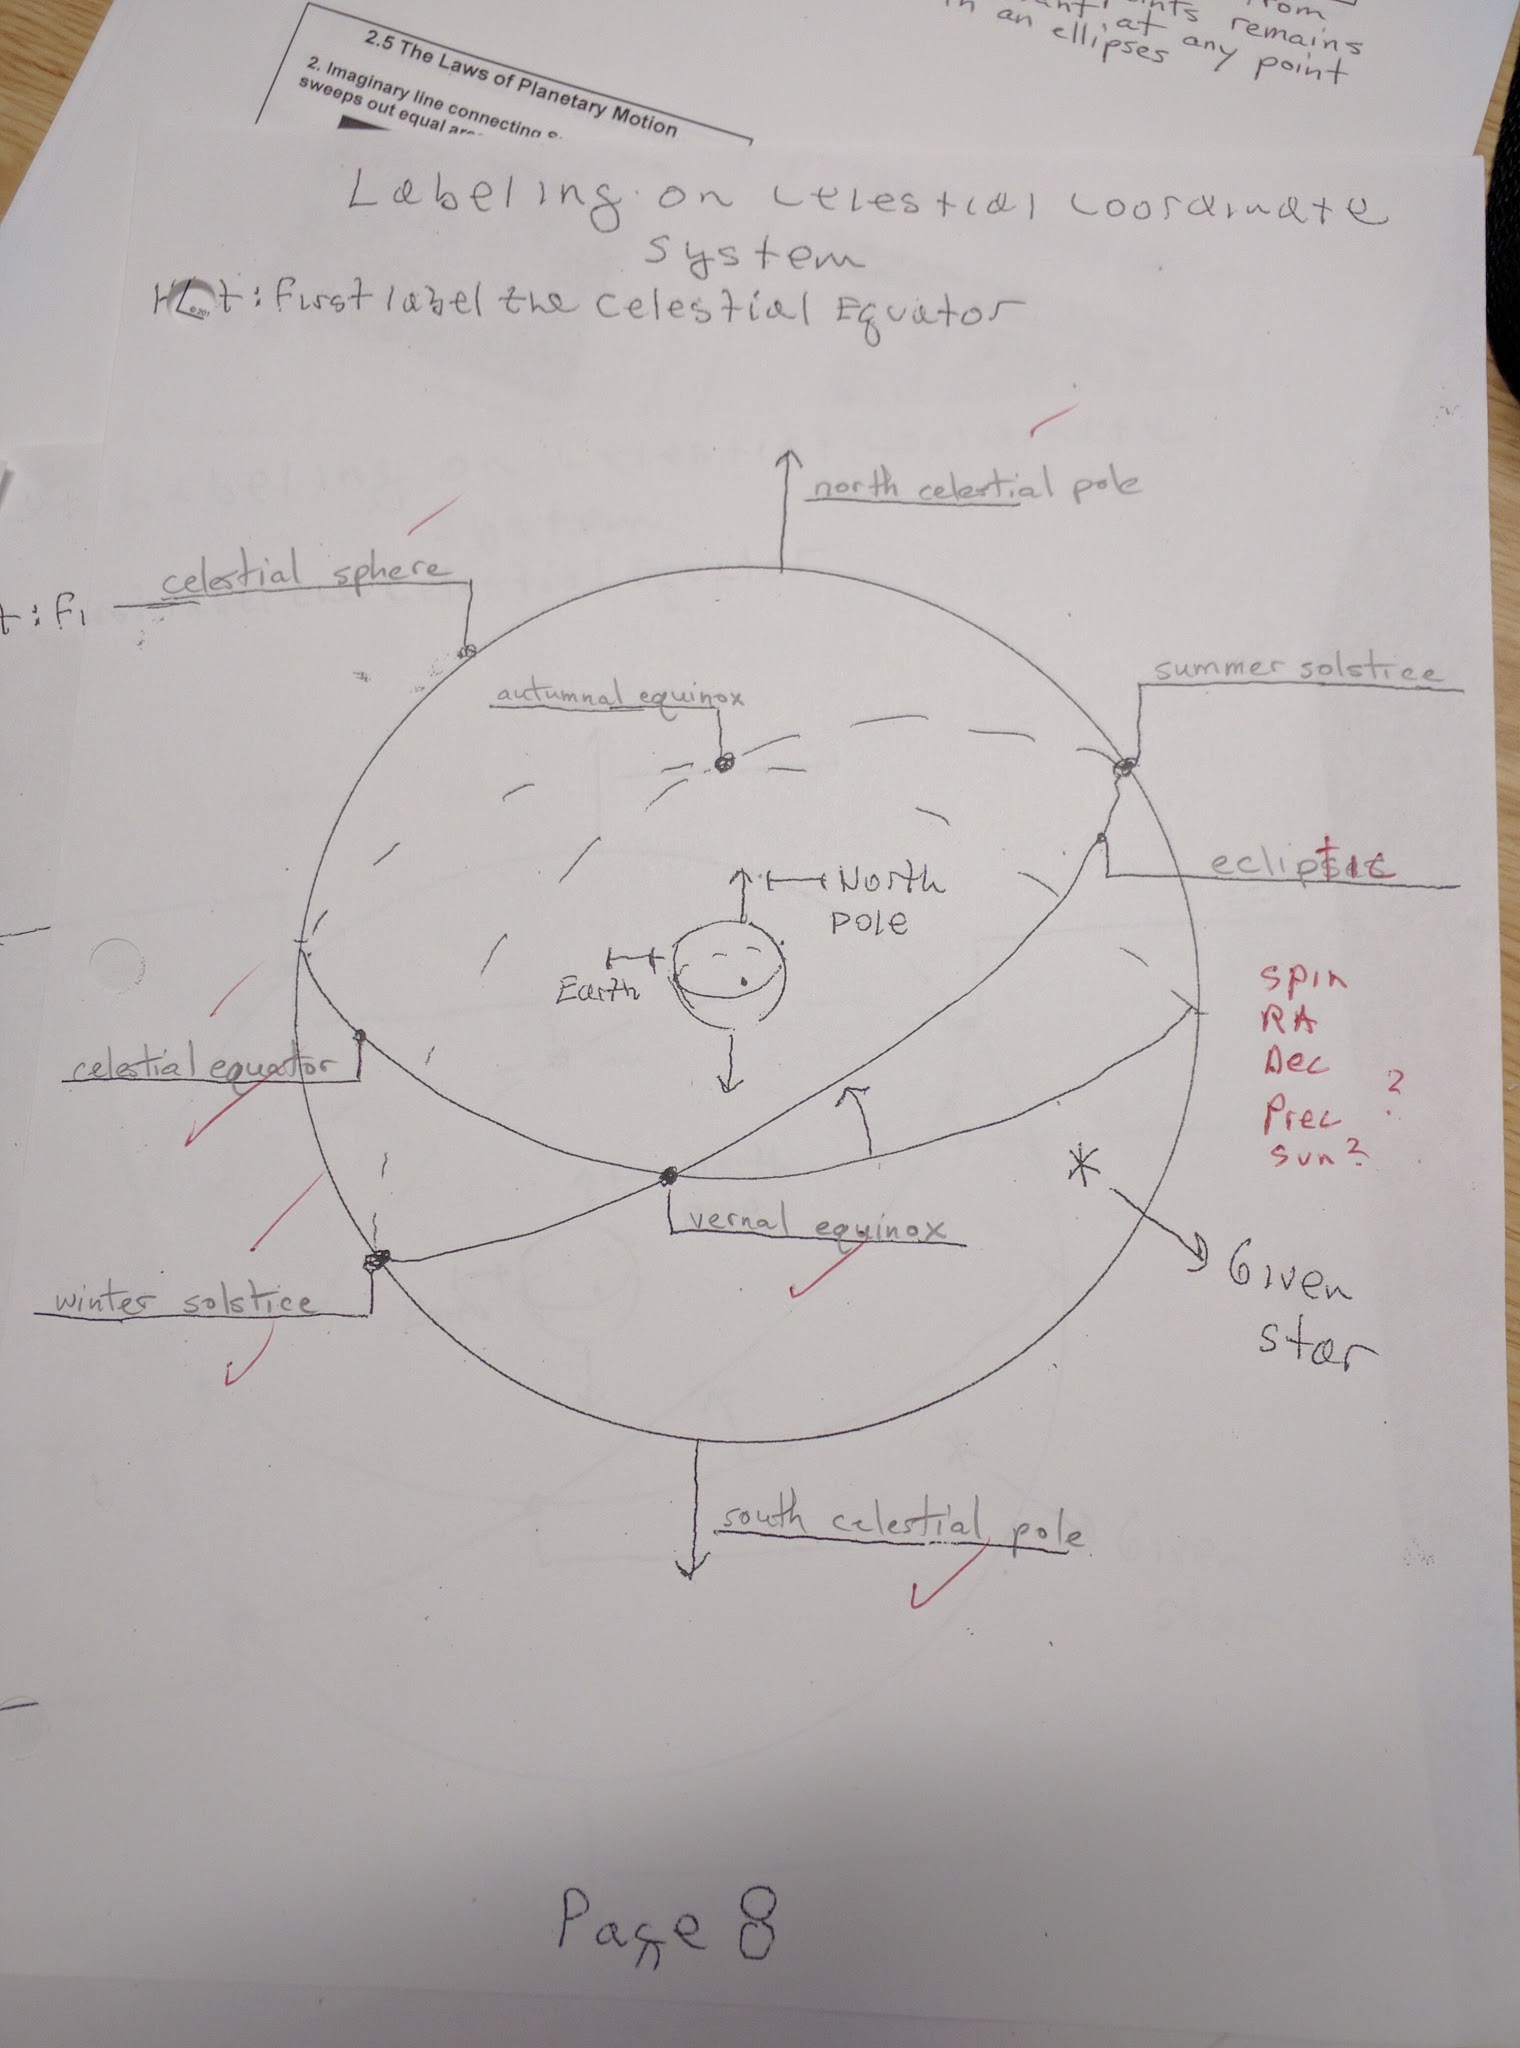 from
remains
in an ellipses at any point
2.5 The Laws of Planetary Motion
2. Imaginary line connecting
sweeps out equal
Labeling on celestial coordinate
system
t: First label the celestial Equator
north celestial pole
celestial sphere
t: Fi
summer solstice
autumnal equinox
ecliptic
North
pole
Earth
spin
RA
Dec
?
Prec
sun?
celestial equator
vernal equinox
Given
star
winter solstice
south celestial pole
Page 8